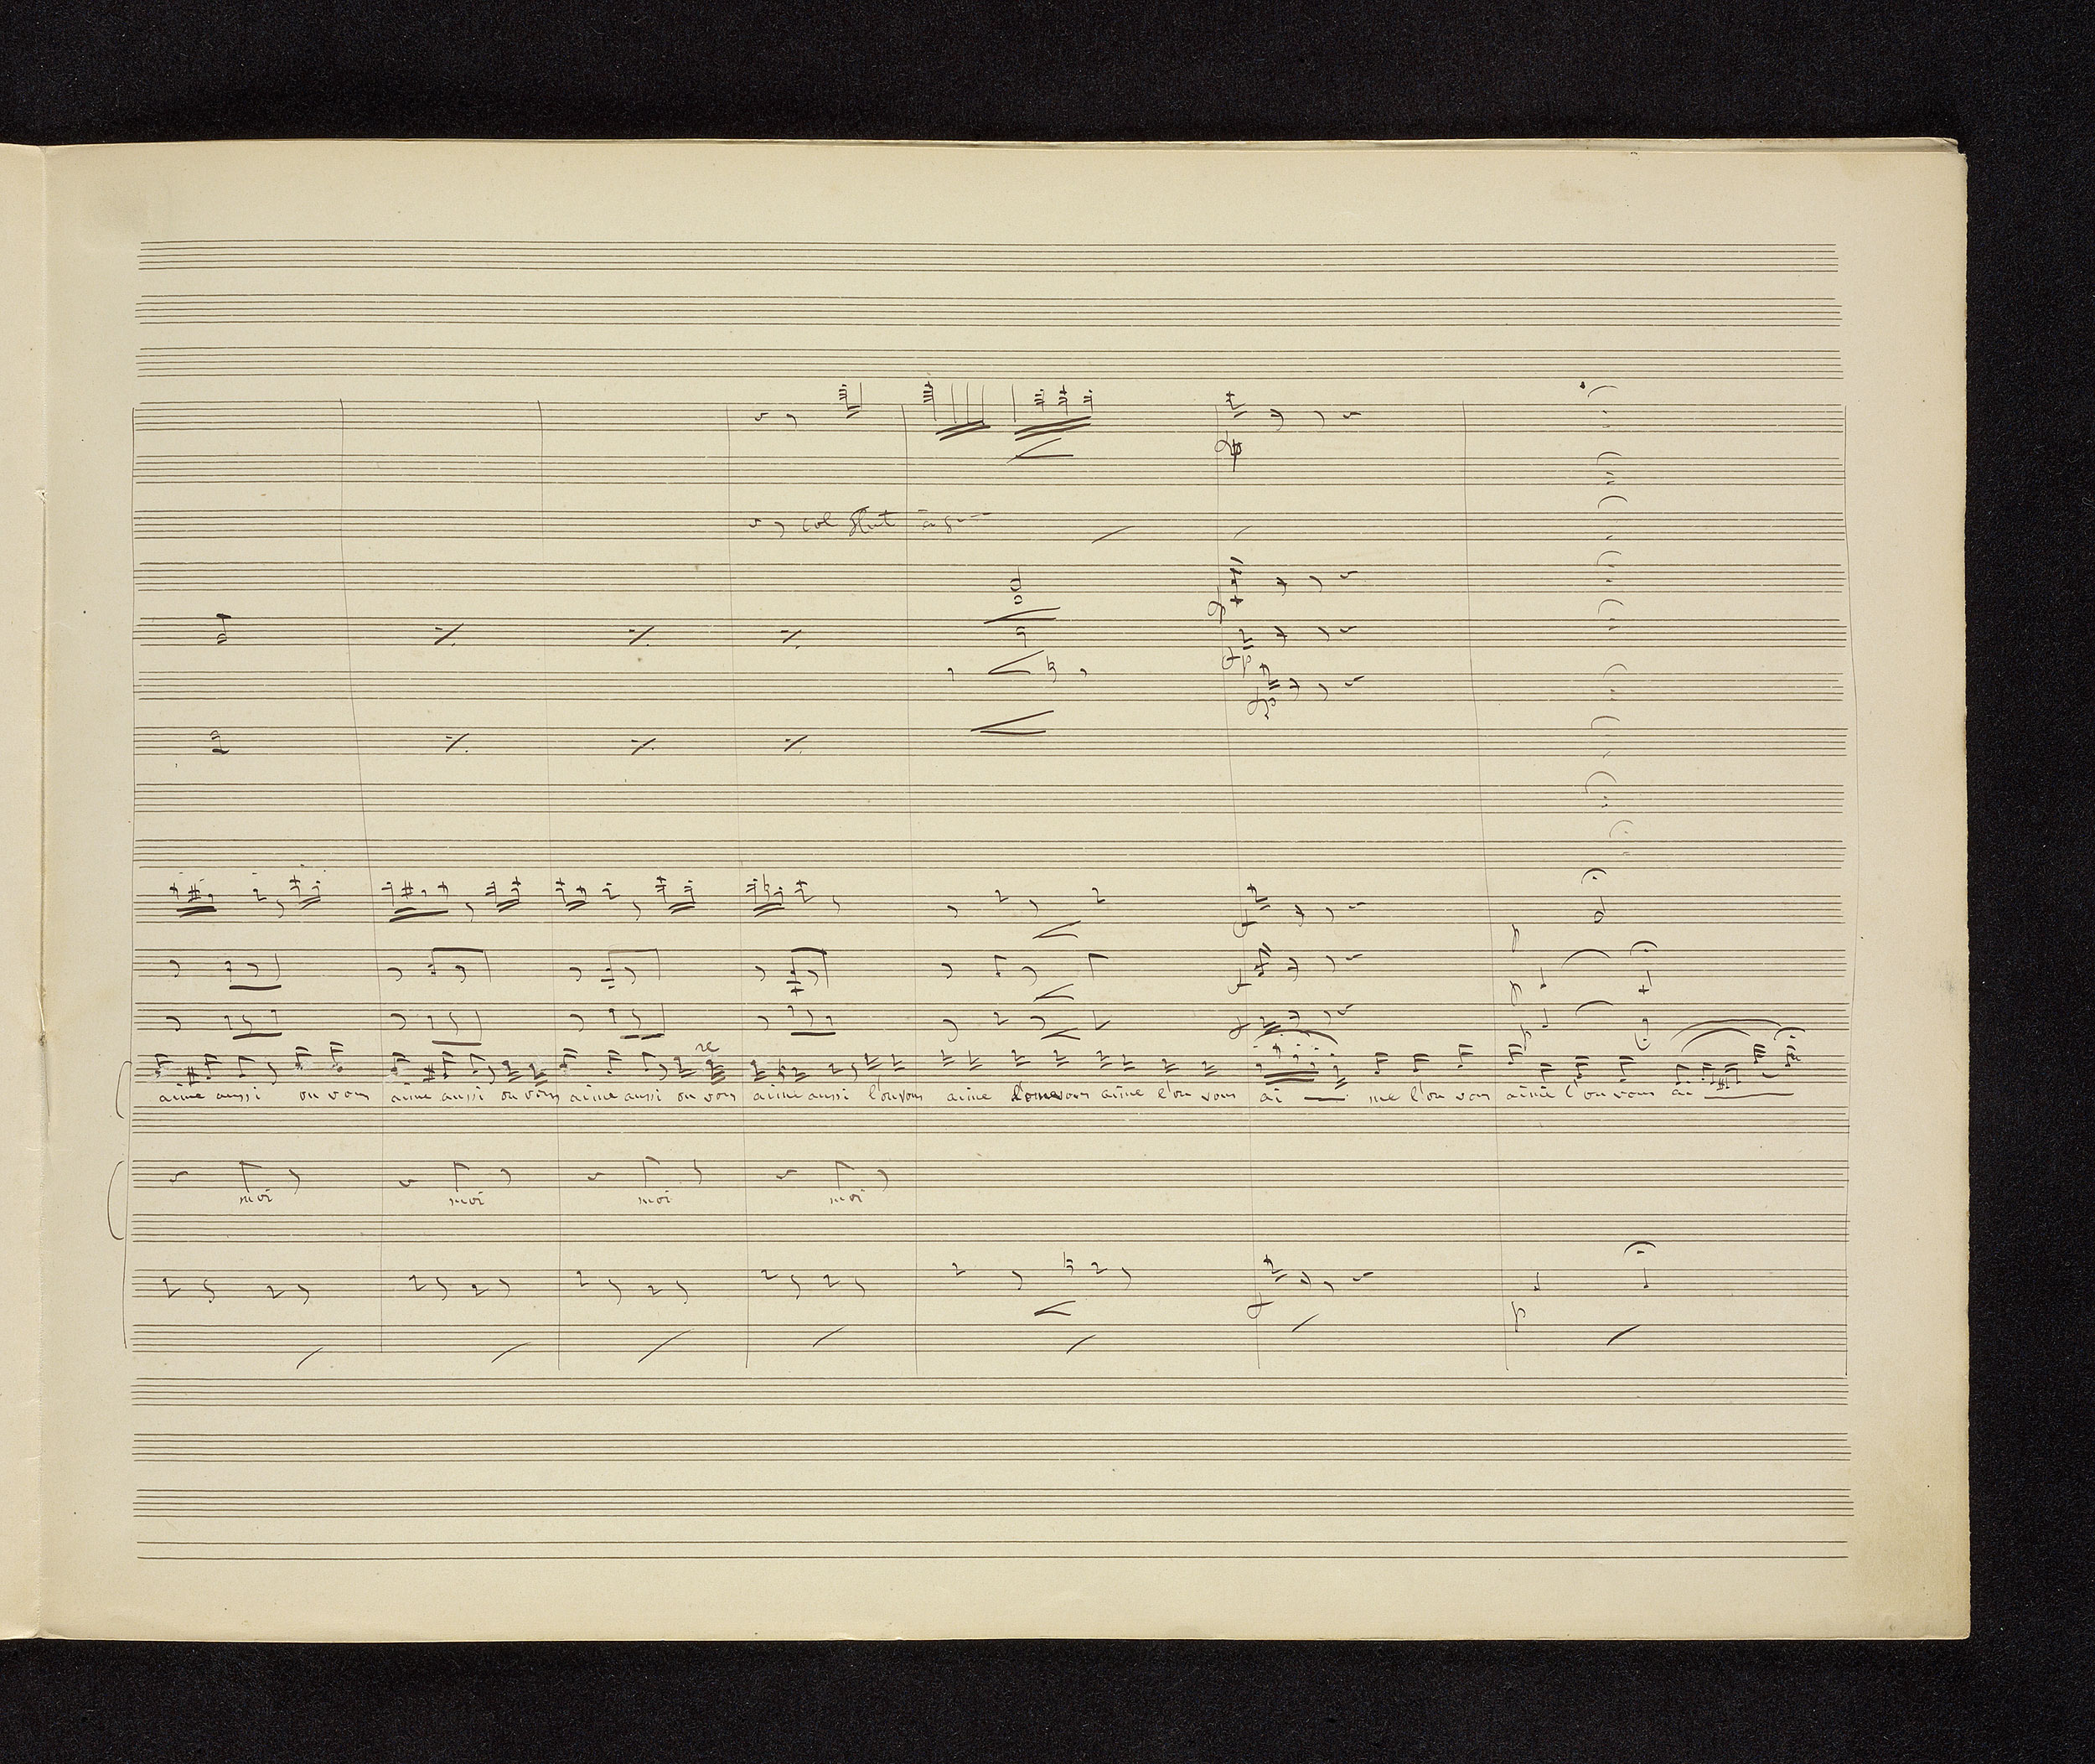 col flut
fp
fp
f
f
p
f
p
re
aime aussi ou vous aime aussi ou vous aime aussi ou vous aime aussi l'ou vous aime l'ou vous aime l'ou vous ai — me l'ou vous aime l'ou vous ai
moi moi moi moi
f
p